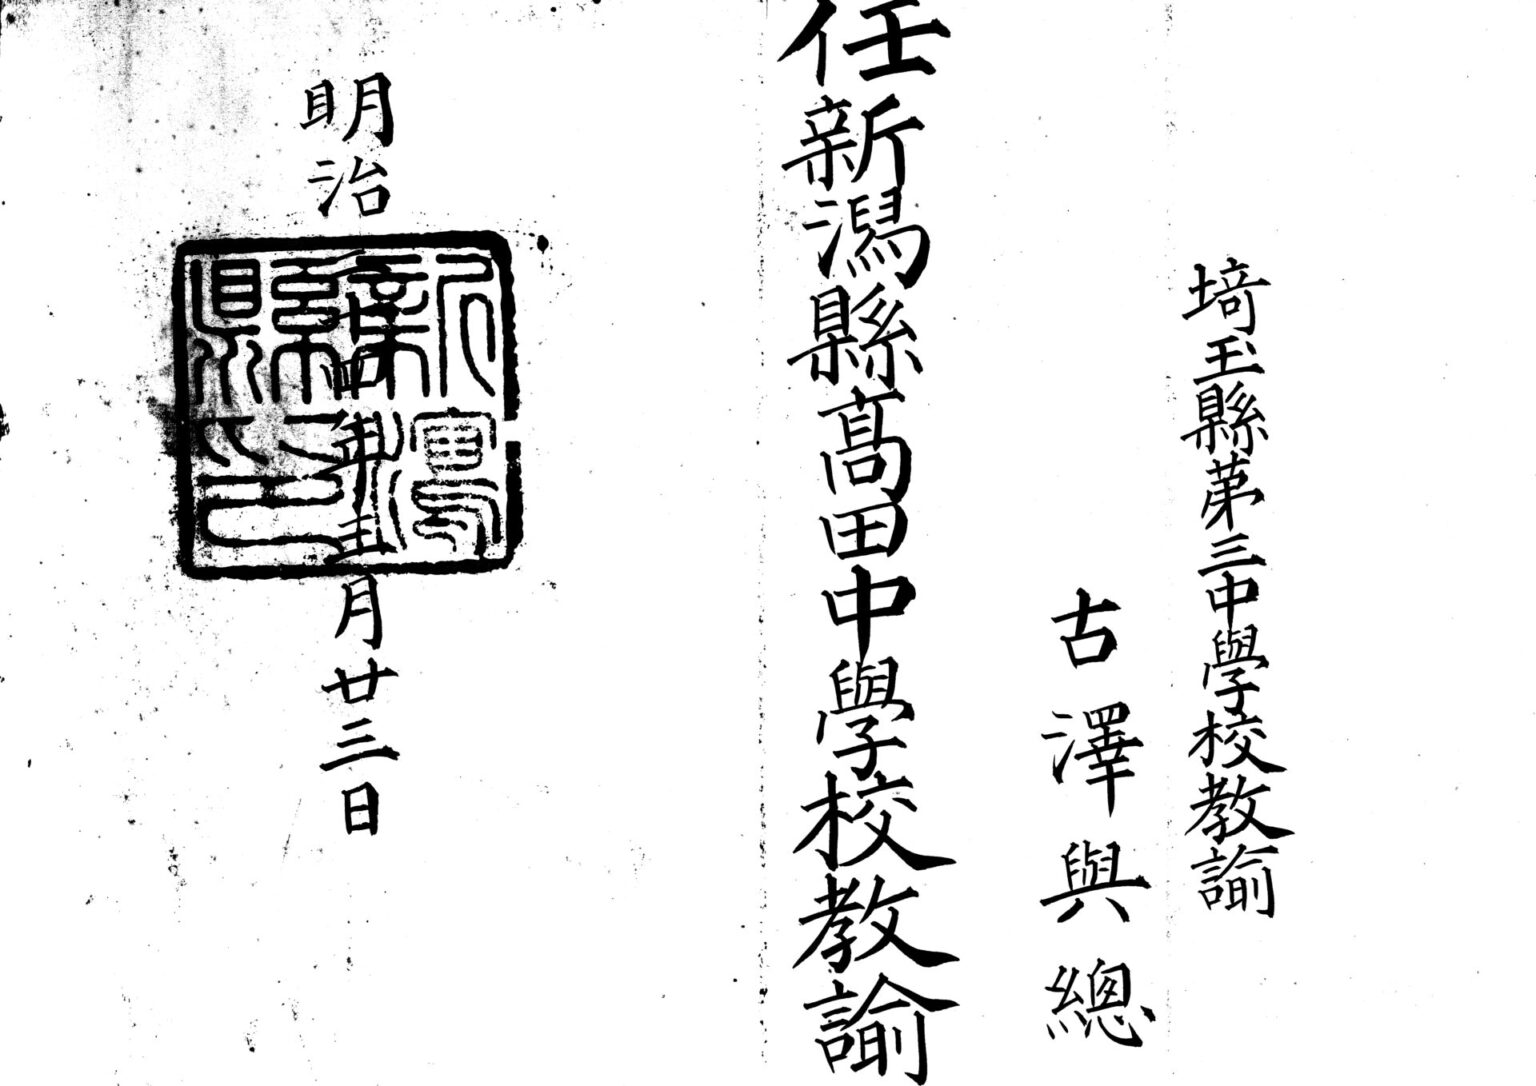 埼玉縣第三中學校教諭
古澤與總
任新潟縣高田中學校教諭
明治卅四年五月廿三日
新潟縣印